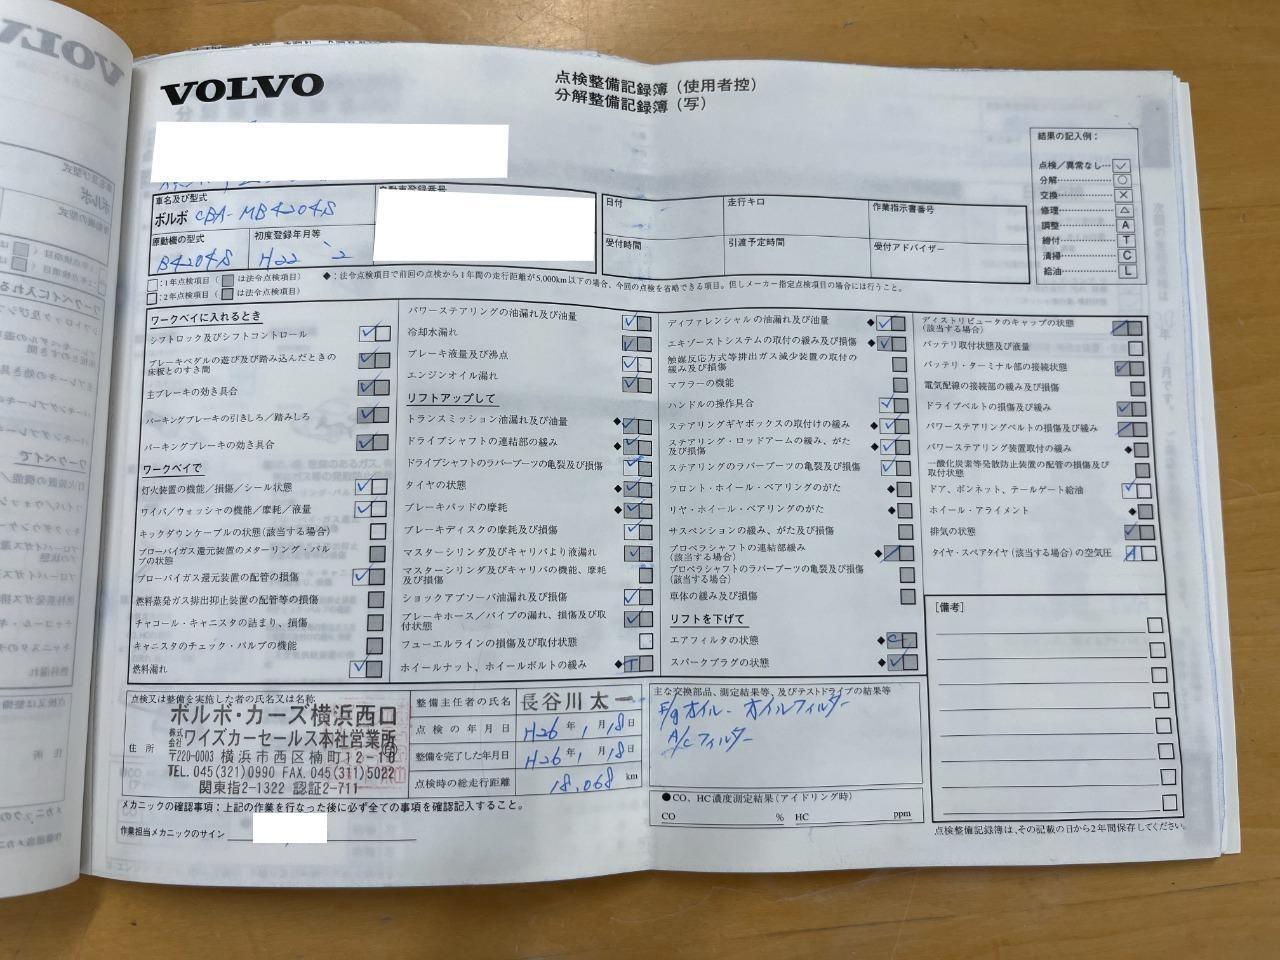 VOLVO
点検整備記録簿（使用者控）
分解整備記録簿（写）
結果の記入例：
点検/異常なし…✓
分解…○
交換…×
修理…△
調整…A
締付…T
清掃…C
給油…L
車名及び型式
ボルボ CBA-MB4204S
自動車登録番号
原動機の型式
B4204S
初度登録年月等
H22 2
日付
走行キロ
作業指示書番号
受付時間
引渡予定時間
受付アドバイザー
□：1年点検項目（ は法令点検項目）
□：2年点検項目（ は法令点検項目）
◆：法令点検項目で前回の点検から1年間の走行距離が5,000km以下の場合、今回の点検を省略できる項目。但しメーカー指定点検項目の場合には行うこと。
ワークベイに入れるとき
シフトロック及びシフトコントロール
ブレーキペダルの遊び及び踏み込んだときの
床板とのすき間
主ブレーキの効き具合
パーキングブレーキの引きしろ/踏みしろ
パーキングブレーキの効き具合
ワークベイで
灯火装置の機能/損傷/シール状態
ワイパ/ウォッシャの機能/摩耗/液量
キックダウンケーブルの状態（該当する場合）
ブローバイガス還元装置のメターリング・バル
ブの状態
ブローバイガス還元装置の配管の損傷
燃料蒸発ガス排出抑止装置の配管等の損傷
チャコール・キャニスタの詰まり、損傷
キャニスタのチェック・バルブの機能
燃料漏れ
パワーステアリングの油漏れ及び油量
冷却水漏れ
ブレーキ液量及び沸点
エンジンオイル漏れ
リフトアップして
トランスミッション油漏れ及び油量
ドライブシャフトの連結部の緩み
ドライブシャフトのラバーブーツの亀裂及び損傷
タイヤの状態
ブレーキパッドの摩耗
ブレーキディスクの摩耗及び損傷
マスターシリンダ及びキャリパより液漏れ
マスターシリンダ及びキャリパの機能、摩耗
及び損傷
ショックアブソーバ油漏れ及び損傷
ブレーキホース/パイプの漏れ、損傷及び取
付状態
フューエルラインの損傷及び取付状態
ホイールナット、ホイールボルトの緩み ◆ T
ディファレンシャルの油漏れ及び油量
エキゾーストシステムの取付の緩み及び損傷
触媒反応方式等排出ガス減少装置の取付の
緩み及び損傷
マフラーの機能
ハンドルの操作具合
ステアリングギヤボックスの取付けの緩み
ステアリング・ロッドアームの緩み、がた
及び損傷
ステアリングのラバーブーツの亀裂及び損傷
フロント・ホイール・ベアリングのがた
リヤ・ホイール・ベアリングのがた
サスペンションの緩み、がた及び損傷
プロペラシャフトの連結部緩み
（該当する場合）
プロペラシャフトのラバーブーツの亀裂及び損傷
（該当する場合）
車体の緩み及び損傷
リフトを下げて
エアフィルタの状態 ◆ C
スパークプラグの状態
ディストリビュータのキャップの状態
（該当する場合）
バッテリ取付状態及び液量
バッテリ・ターミナル部の接続状態
電気配線の接続部の緩み及び損傷
ドライブベルトの損傷及び緩み
パワーステアリングベルトの損傷及び緩み
パワーステアリング装置取付の緩み
一酸化炭素等発散防止装置の配管の損傷及び
取付状態
ドア、ボンネット、テールゲート給油
ホイール・アライメント
排気の状態
タイヤ・スペアタイヤ（該当する場合）の空気圧 A
［備考］
点検又は整備を実施した者の氏名又は名称
ボルボ・カーズ横浜西口
株式会社 ワイズカーセールス本社営業所
住所
〒220-0003 横浜市西区楠町12-10
TEL.045(321)0990 FAX.045(311)5022
関東指2-1322 認証2-711
整備主任者の氏名 長谷川太一
点検の年月日 H26年1月18日
整備を完了した年月日 H26年1月18日
点検時の総走行距離 18,068 km
主な交換部品、測定結果等、及びテストドライブの結果等
E/gオイル・オイルフィルター
A/Cフィルター
●CO、HC濃度測定結果（アイドリング時）
CO % HC ppm
メカニックの確認事項：上記の作業を行なった後に必ず全ての事項を確認記入すること。
作業担当メカニックのサイン
点検整備記録簿は、その記載の日から2年間保存してください。